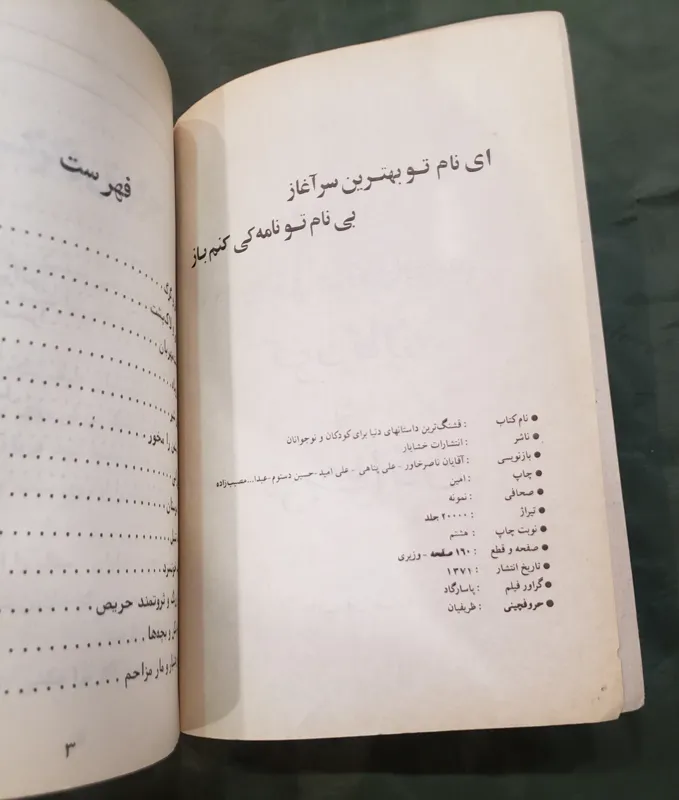 ای نام تو بهترین سرآغاز
بی نام تو نامه کی کنم باز
● نام کتاب : قشنگ‌ترین داستانهای دنیا برای کودکان و نوجوانان
● ناشر : انتشارات خشایار
● بازنویسی : آقایان ناصر خاور - علی پناهی - علی امید - حسین دستوم - عبدا... مصیب‌زاده
● چاپ : امین
● صحافی : نمونه
● تیراژ : ۲۰۰۰۰ جلد
● نوبت چاپ : هشتم
● صفحه و قطع : ۱۶۰ صفحه - وزیری
● تاریخ انتشار : ۱۳۷۱
● گراور فیلم : پاسارگاد
● حروفچینی : ظریفیان
فهرست
و گرگ
لاک‌پشت
مهربان
را مخور
و ثروتمند حریص
و بچه‌ها
و مار مزاحم
۳